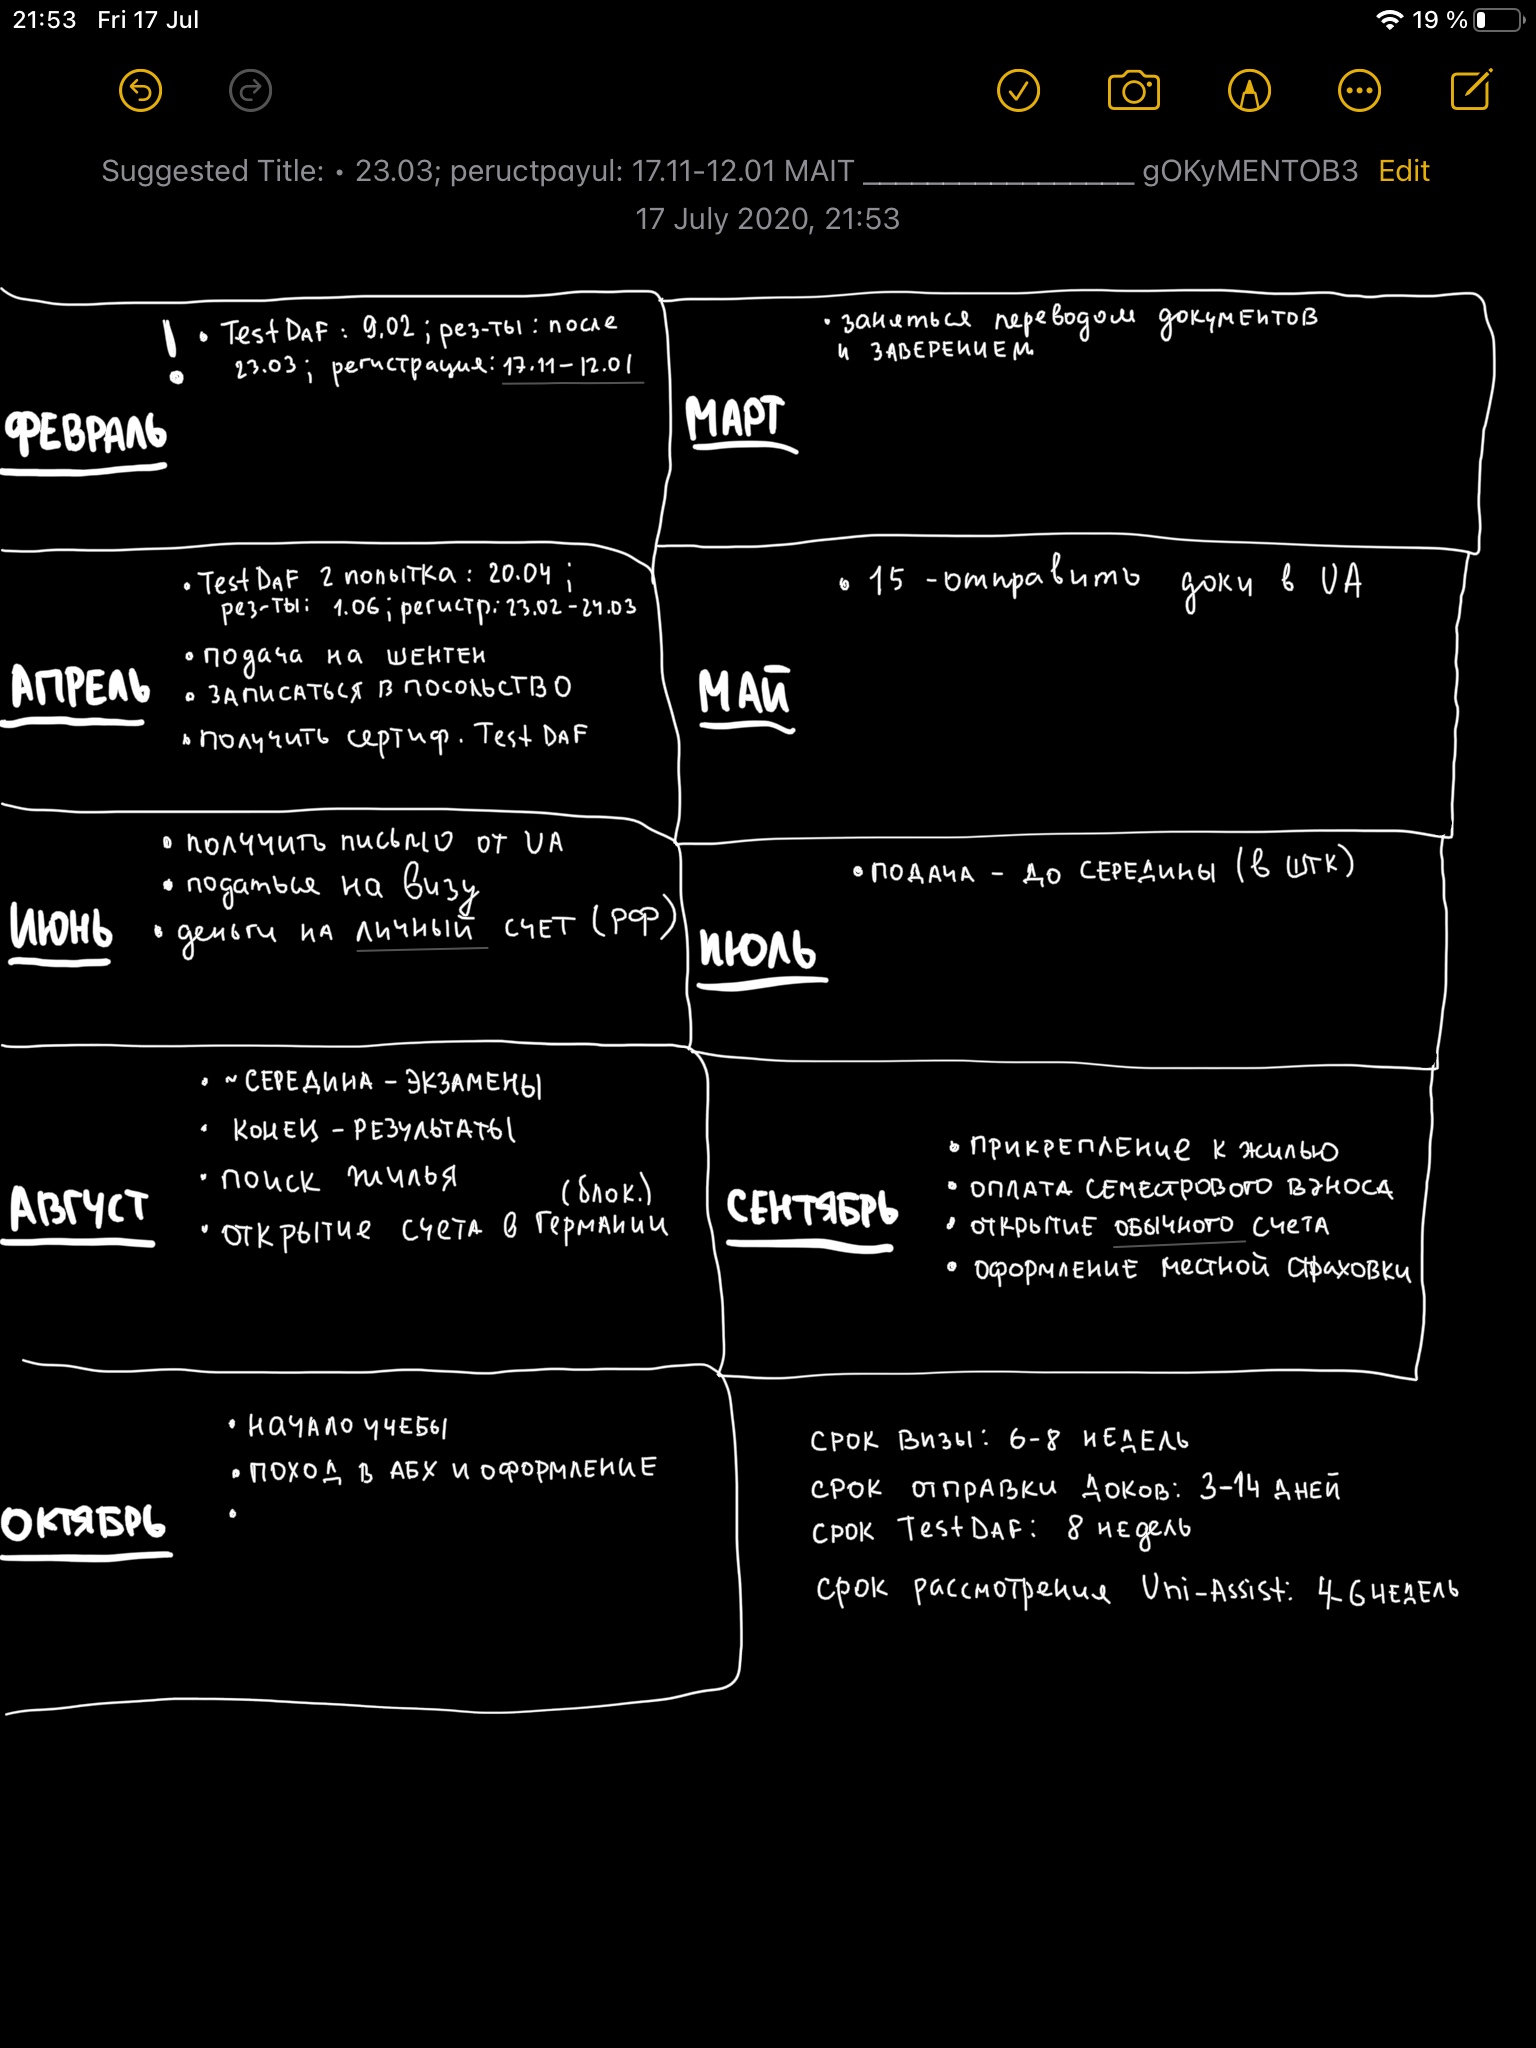 21:53 Fri 17 Jul
19 %
Suggested Title: • 23.03; peructpayul: 17.11-12.01 MAIT _________________ gOKyMENTOB3 Edit
17 July 2020, 21:53
! • TestDaF: 9.02; рез-ты: после
23.03; регистрация: 17.11-12.01
ФЕВРАЛЬ
• заняться переводом документов
и ЗАВЕРЕНИЕМ
МАРТ
• TestDaF 2 попытка: 20.04;
рез-ты: 1.06; регистр: 23.02-24.03
• подача на шенген
• ЗАПИСАТЬСЯ В ПОСОЛЬСТВО
• получить сертиф. TestDaF
АПРЕЛЬ
• 15 - отправить доки в UA
МАЙ
• получить письмо от UA
• податься на визу
• деньги на личный счет (РФ)
ИЮНЬ
• ПОДАЧА - ДО СЕРЕДИНЫ (в ШТК)
ИЮЛЬ
• ~ СЕРЕДИНА - ЭКЗАМЕНЫ
• КОНЕЦ - РЕЗУЛЬТАТЫ
• поиск жилья
(блок.)
• открытие счета в Германии
АВГУСТ
• ПРИКРЕПЛЕНИЕ К ЖИЛЬЮ
• ОПЛАТА СЕМЕСТРОВОГО ВЗНОСА
• ОТКРЫТИЕ ОБЫЧНОГО СЧЕТА
• ОФОРМЛЕНИЕ местной страховки
СЕНТЯБРЬ
• НАЧАЛО УЧЕБЫ
• ПОХОД В АБХ И ОФОРМЛЕНИЕ
•
ОКТЯБРЬ
СРОК ВИЗЫ: 6-8 НЕДЕЛЬ
СРОК ОТПРАВКИ ДОКОВ: 3-14 ДНЕЙ
СРОК TestDaF: 8 недель
Срок рассмотрения Uni-Assist: 4-6 НЕДЕЛЬ